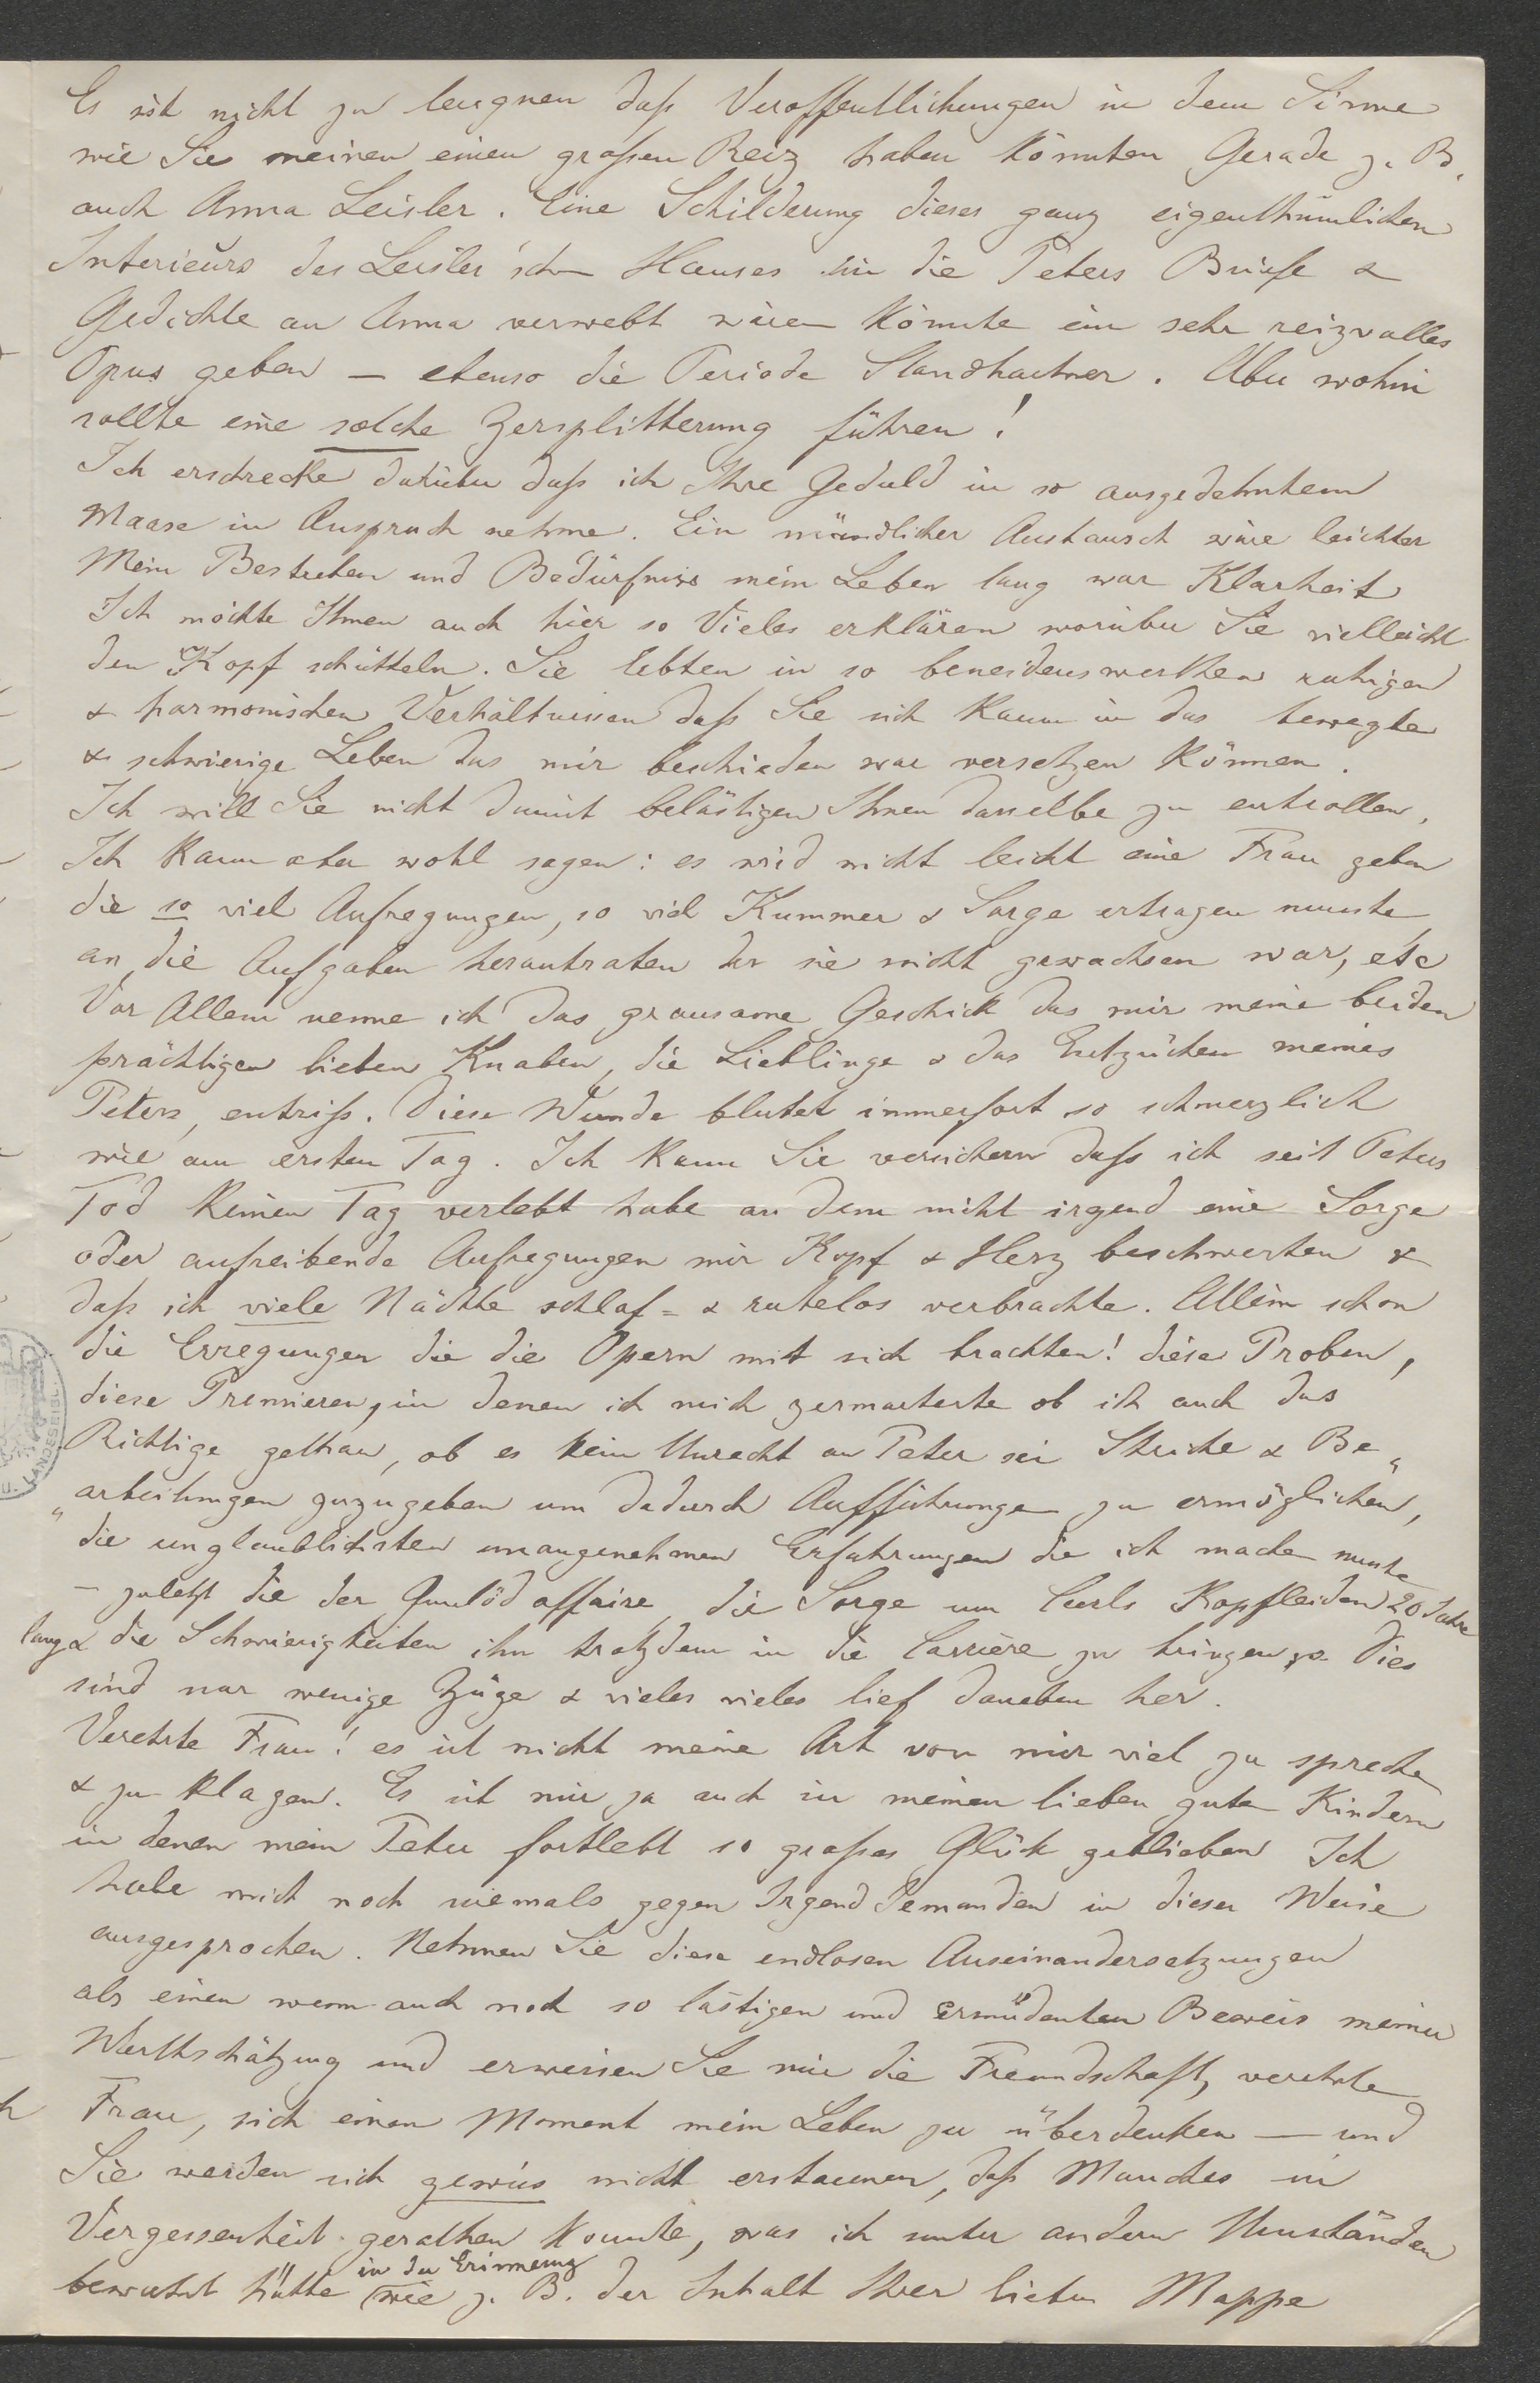 Es ist nicht zu leugnen daß Veröffentlichungen in dem Sinne
wie Sie meinen einen großen Reiz haben könnten Gerade z. B.
auch Anna Leisler. Eine Schilderung dieses ganz eigenthümlichen
Interieurs des Leisler'schen Hauses in die Peters Briefe &
Gedichte an Anna verwebt wären könnte ein sehr reizvolles
Opus geben – ebenso die Periode Standhartner. Aber wohin
sollte eine solche Zersplitterung führen!
Ich erschrecke darüber daß ich Ihre Geduld in so ausgedehntem
Maase in Anspruch nehme. Ein mündlicher Austausch wäre leichter
Mein Bestreben und Bedürfniss mein Leben lang war Klarheit
Ich möchte Ihnen auch hier so Vieles erklären worüber Sie vielleicht
den Kopf schütteln. Sie lebten in so beneidenswerthen ruhigen
& harmonischen Verhältnissen daß Sie sich kaum in das bewegte
& schwierige Leben das mir beschieden war versetzen können.
Ich will Sie nicht damit belästigen Ihnen dasselbe zu entrollen,
Ich kann aber wohl sagen: es wird nicht leicht eine Frau geben
die so viel Aufregungen, so viel Kummer & Sorge ertragen musste
an die Aufgaben herantraten der sie nicht gewachsen war, etc
Vor Allem nenne ich das grausame Geschick das mir meine beiden
prächtigen lieben Knaben, die Lieblinge & das Entzücken meines
Peters, entriß. Diese Wunde blutet immerfort so schmerzlich
wie am ersten Tag. Ich kann Sie versichern daß ich seit Peters
Tod keinen Tag verlebt habe an dem nicht irgend eine Sorge
oder aufreibende Aufregungen mir Kopf & Herz beschwerten &
daß ich viele Nächte schlaf= & ruhelos verbrachte. Allein schon
die Erregungen die die Opern mit sich brachten! diese Proben,
diese Premieren, in denen ich mich zermarterte ob ich auch das
Richtige gethan, ob es kein Unrecht an Peter sei Striche & Be„
„arbeitungen zuzugeben um dadurch Aufführungen zu ermöglichen,
die unglaublichsten unangenehmen Erfahrungen die ich machen musste
– zuletzt die der Gunlöd affaire, die Sorge um Carls Kopfleiden 20 Jahre
lang & die Schwierigkeiten ihn trotzdem in die Carrière zu bringen pp. Dies
sind nur wenige Züge & vieles vieles lief daneben her.
Verehrte Frau! es ist nicht meine Art von mir viel zu sprechen
& zu klagen. Es ist mir ja auch in meinen lieben guten Kindern
in denen mein Peter fortlebt so großes Glück geblieben Ich
habe mich noch niemals gegen Irgend Jemanden in dieser Weise
ausgesprochen. Nehmen Sie diese endlosen Auseinandersetzungen
als einen wenn auch noch so lästigen und ermüdenten Beweis meiner
Werthschätzung und erweisen Sie mir die Freundschaft, verehrte
Frau, sich einen Moment mein Leben zu überdenken – und
Sie werden sich gewiss nicht erstaunen, daß Manches in
Vergessenheit gerathen konnte, was ich unter andern Umständen
in der Erinnerung
bewahrt hätte wie z. B. der Inhalt Ihrer lieben Mappe